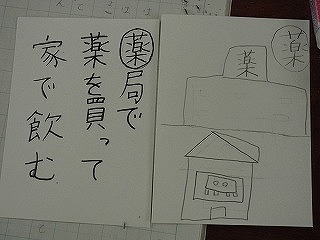 薬局で
薬を買って
家で飲む
薬
薬